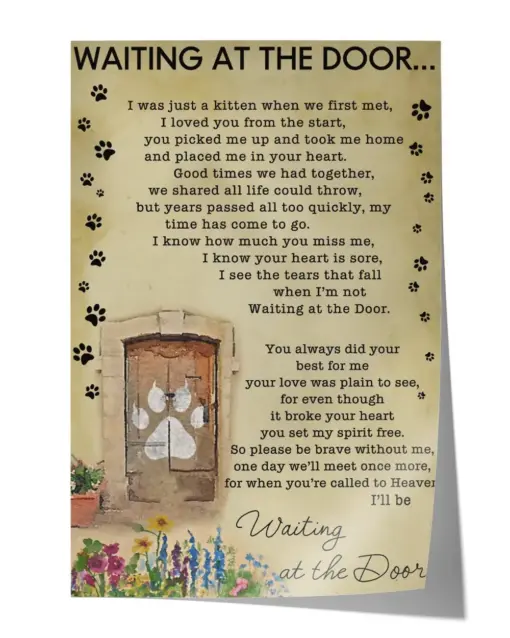 WAITING AT THE DOOR...
I was just a kitten when we first met,
I loved you from the start,
you picked me up and took me home
and placed me in your heart.
Good times we had together,
we shared all life could throw,
but years passed all too quickly, my
time has come to go.
I know how much you miss me,
I know your heart is sore,
I see the tears that fall
when I'm not
Waiting at the Door.
You always did your
best for me
your love was plain to see,
for even though
it broke your heart
you set my spirit free.
So please be brave without me,
one day we'll meet once more,
for when you're called to Heaven
I'll be
Waiting
at the Door